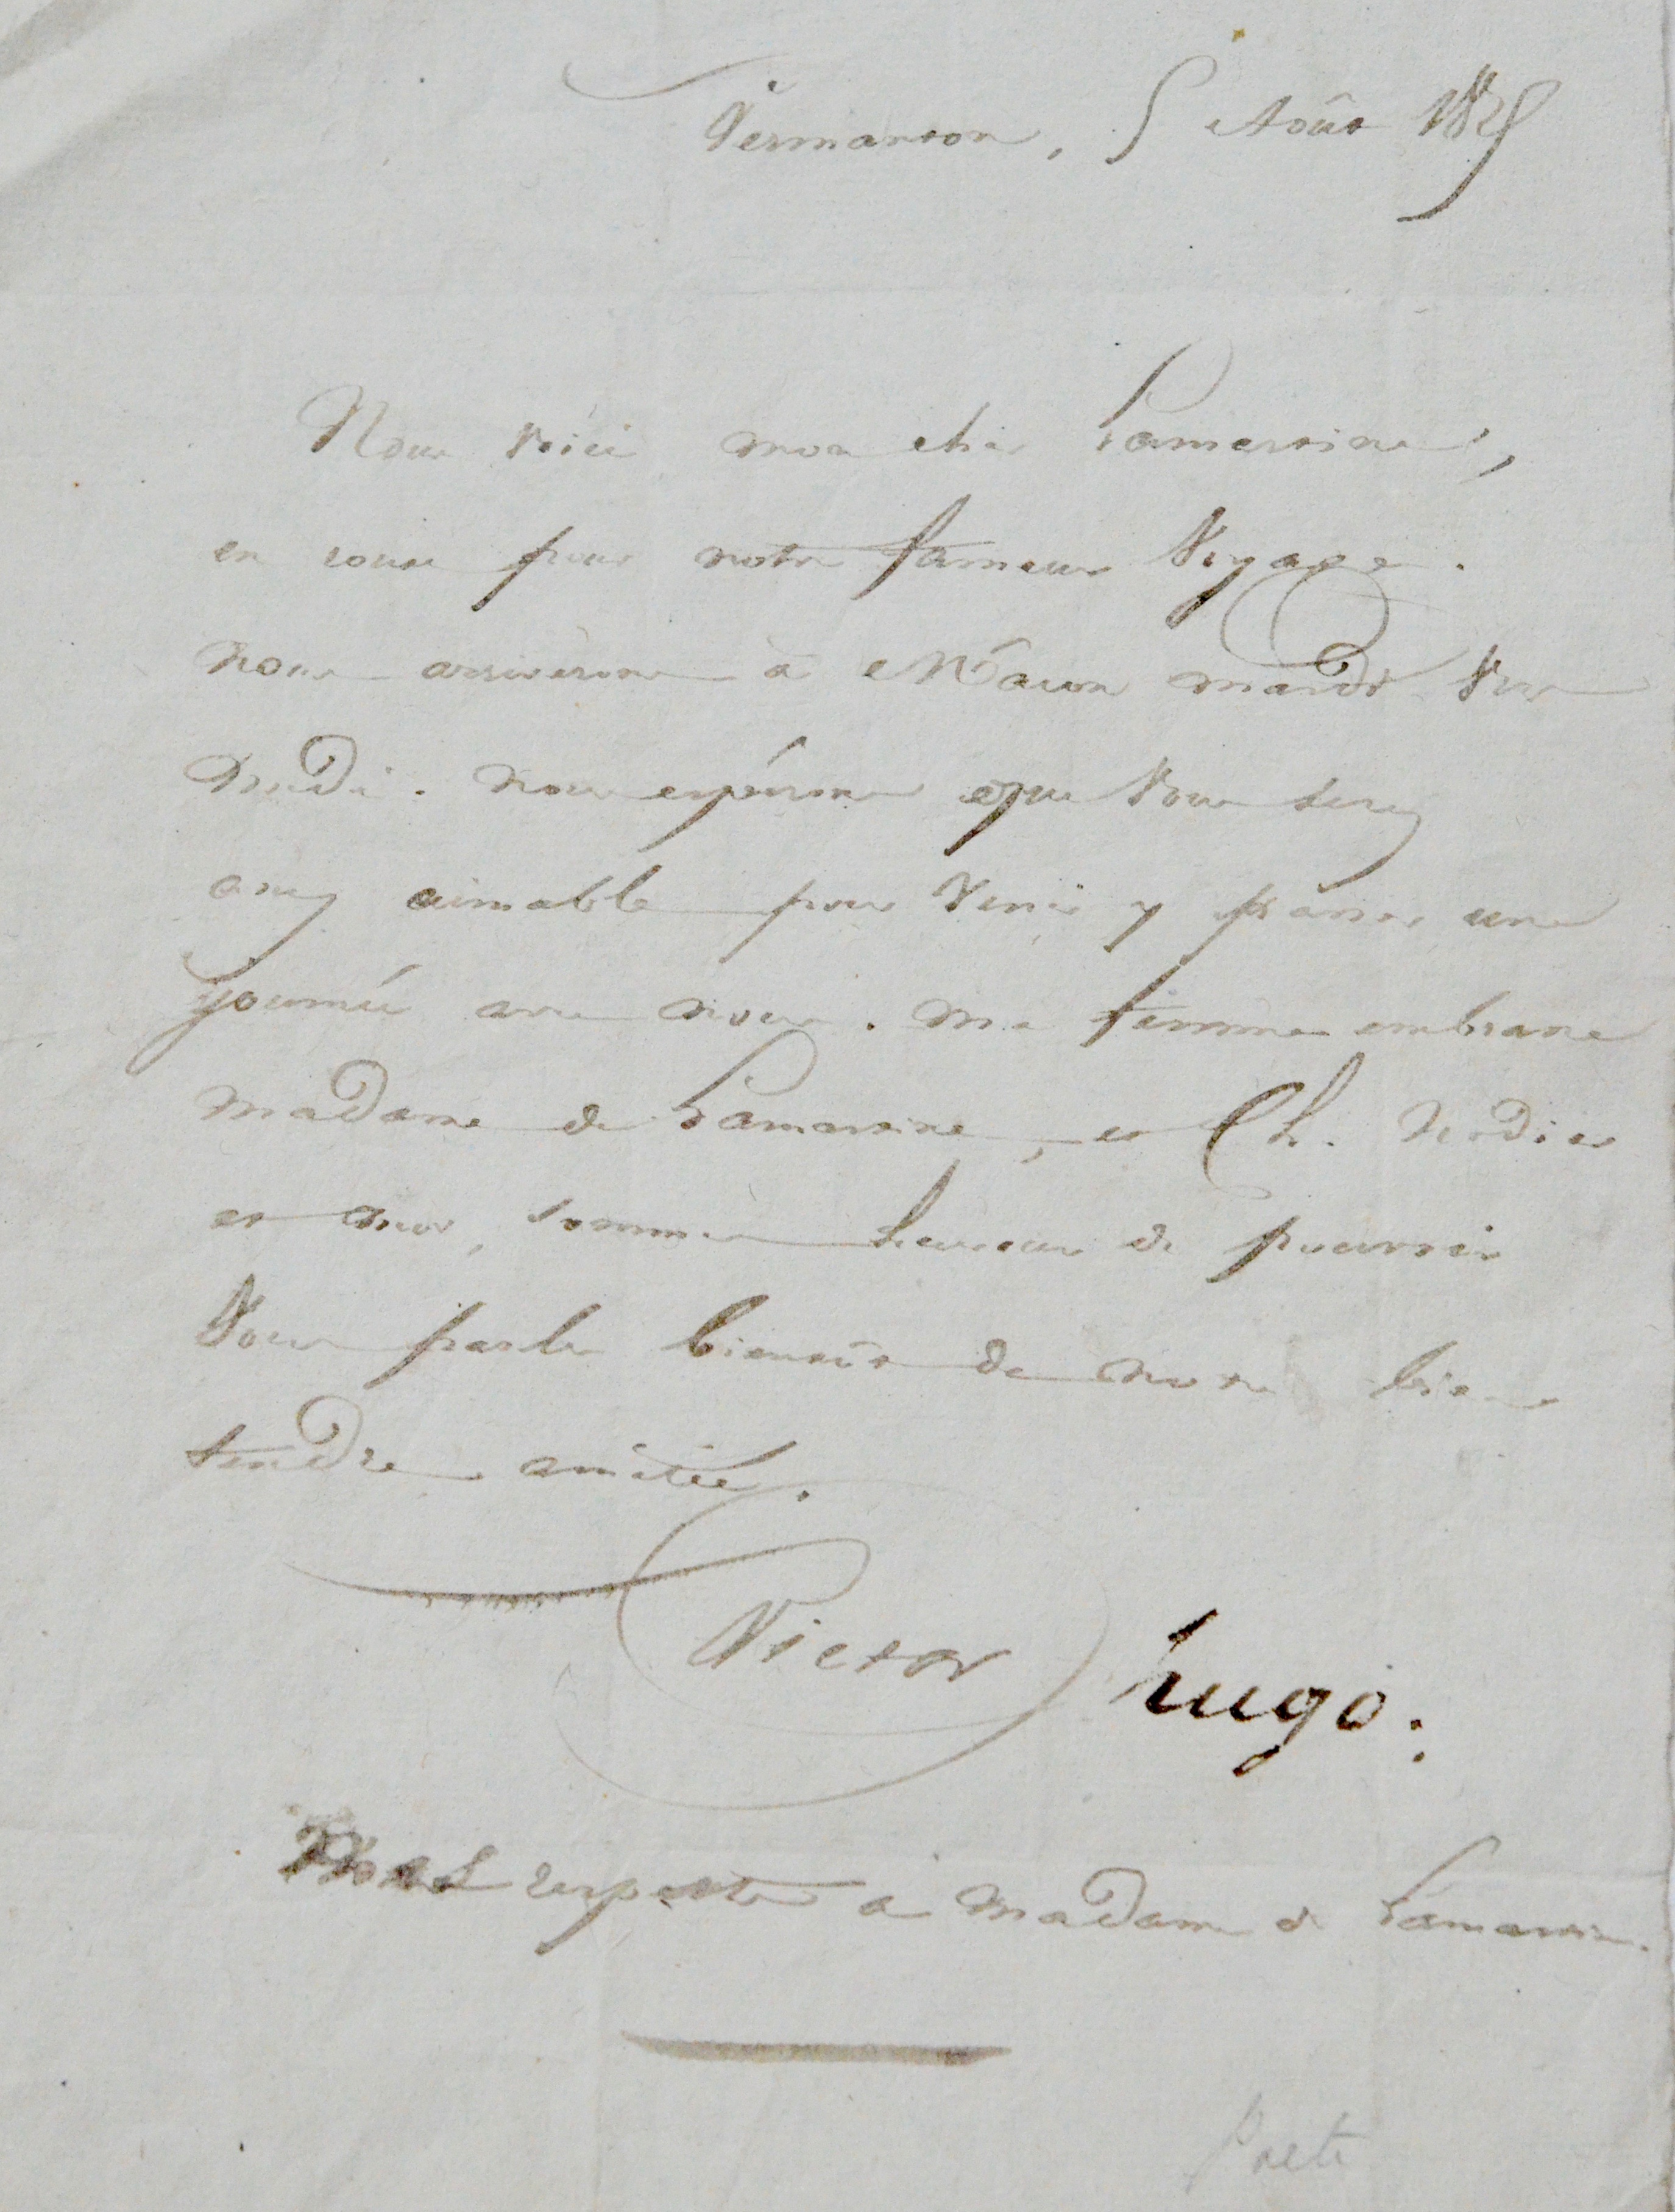 Vermanton, 5 Août 1825
Nous voici mon cher Lamartine,
en route pour notre fameux voyage.
Nous arriverons à Mâcon mardi vers
midi. Nous espérons que vous serez
assez aimable pour venir y passer une
journée avec nous. Ma femme embrasse
Madame de Lamartine, et Ch. Nodier
et moi, sommes heureux de pouvoir
vous parler bientôt de notre bien
tendre amitié.
Victor Hugo.
respects à Madame de Lamartine.